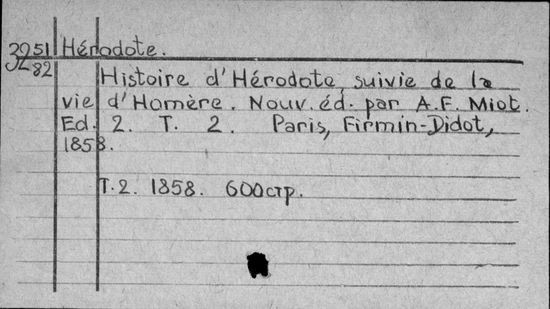 3251 Hérodote.
IL82
Histoire d'Hérodote, suivie de la
vie d'Homère. Nouv. éd. par A.F. Miot.
Ed. 2. T. 2. Paris, Firmin-Didot,
1858.
T.2. 1858. 600стр.